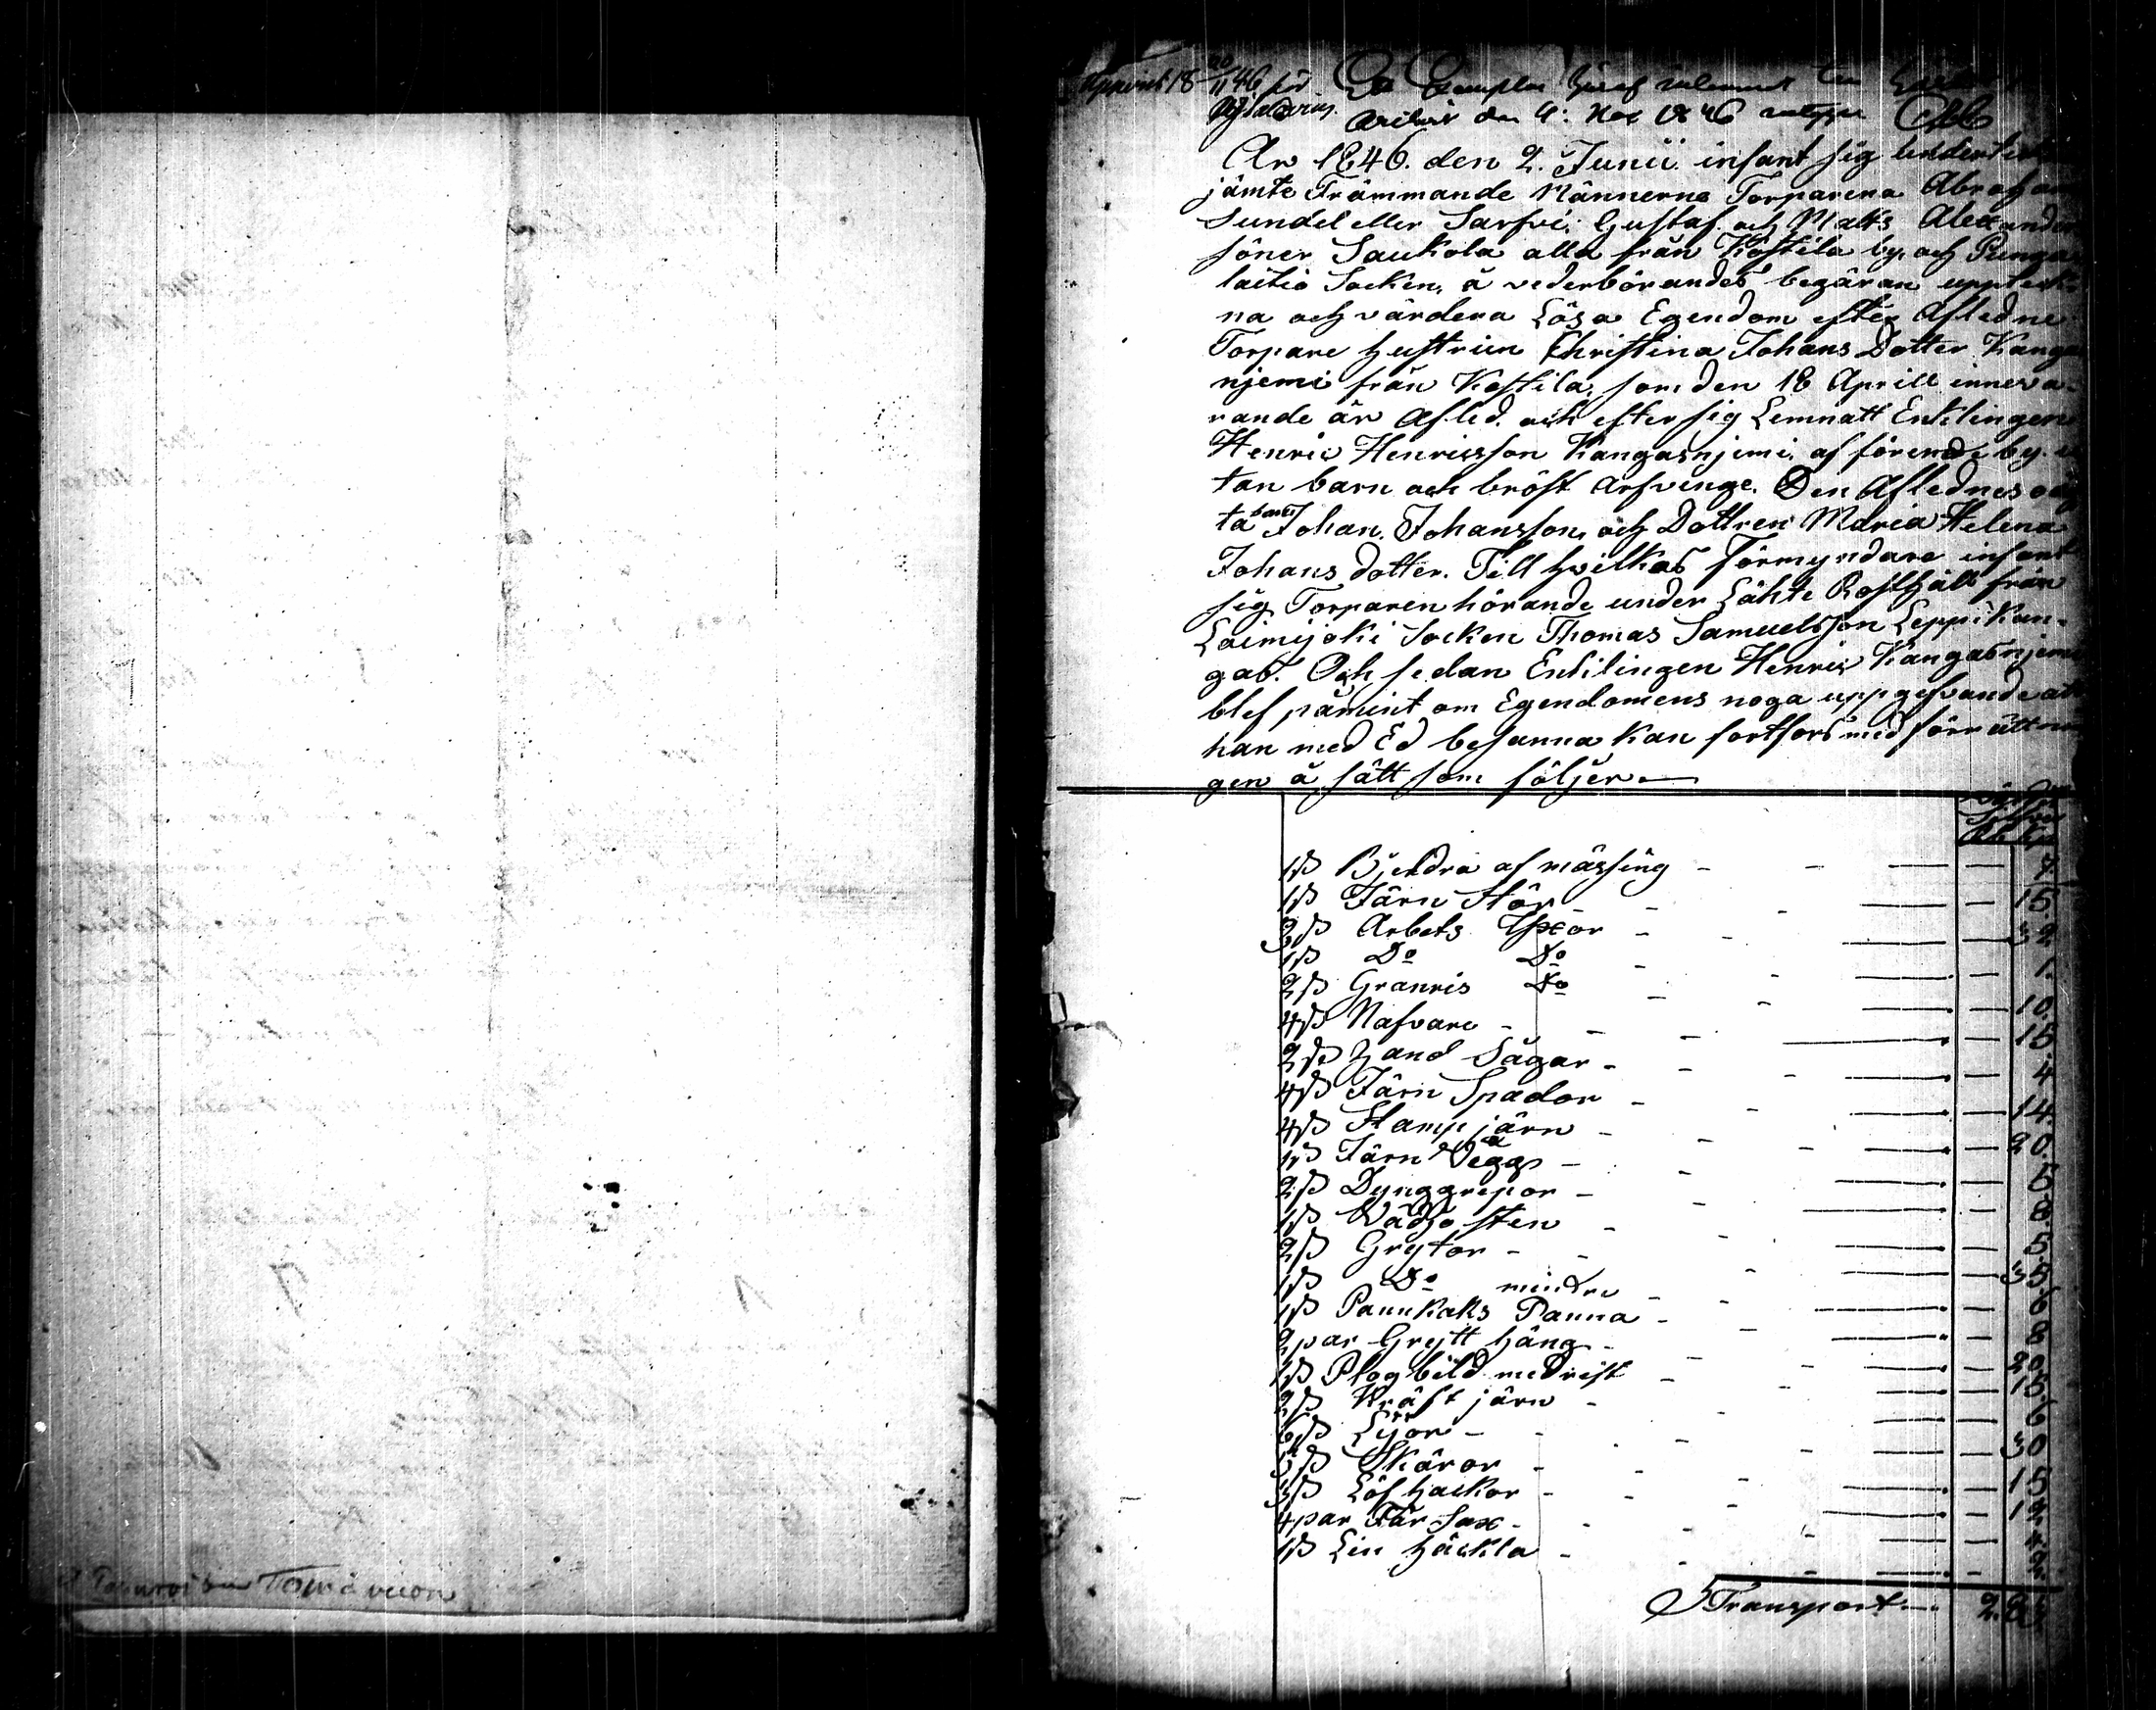 År 1846. den 2. Junii infant sig
jämte Främmande Männerne Torparena Abraham
Sundel eller Sarfvi; Gustaf och Matts Alexander
söner Saukola alla frånKöstila by, och Punga
laitio Socken, å vederbörandes begäran uppteck-
na och värdera Lösa Egendom efter Afledne
Torpare hustrun Christina Johans Dotter Kanga
njemi från Kostila, som den 18 Aprill inneva-
rande år Afled. och efter sig Lemnatt Enklingen
Henric Henricsson Kangasnjemi, af förende by. u
tan barn och bröst arfvinge. Den Aflednes
ta barn Johan Johansson, och Dottren Maria Helena
Johans dotter. Till hvilkas Förmyndare infant
sig Torparen hörande under Lähte Rosthåll från
Loimijoki Socken Thomas Samuelsson Leppikan-
gas. Och sedan Enklingen Henric Kangasnjemi
blef påmint om Egendomens noga uppgifvande att
han med Ed besanna kan fortfors med förrättnin
gen å sätt som följer
1 st Bjeldra af mässing - - — — 7.
1 st Järn Stör - - — — 15.
3 st Arbets Yxor - - — — 32
1 st Do Do - - — — 1.
2 st Granris Do - - — — 10.
4 st Nafvare - - — — 15
2 st Hand Sågar - - — — 4
4 st Järn Spador - - — — 14.
4 st Stamp järn - - — — 20.
1 st Järn Vegg - - — — 5
2 st Dynggrepor - - — — 8.
1 st Vädjo sten - - — — 5.
2 st Grytor - - — — 35.
1 st Do mindre - - — — 6
1 st Pannkaks Panna - - — — 8
2 par Grytt häng - - — — 20
1 st Plog bild med rist - - — — 15.
2 st Kräft järn - - — — 6
6 st Lijor - - — — 30
5 st Skäror - - — — 15
3 st Löf hackor - - — — 12
4 par Får Sax - - — —
1 st Lin häckla - - — — 2.
Transport — 2.